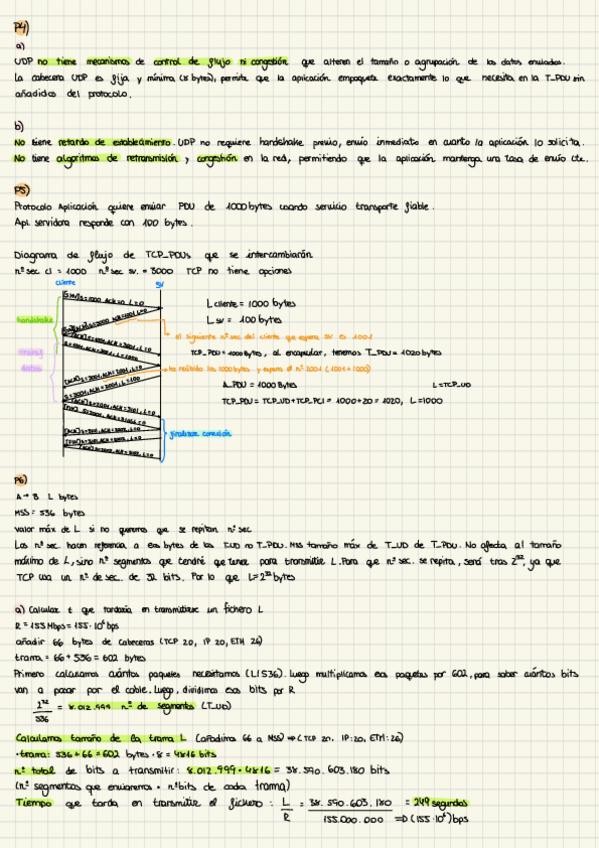 P4)
a)
UDP no tiene mecanismos de control de flujo ni congestión que alteren el tamaño o agrupación de los datos enviados.
La cabecera UDP es fija y mínima (8 bytes), permite que la aplicación empaquete exactamente lo que necesita en la T_PDU sin
añadidos del protocolo.
b)
No tiene retardo de establecimiento. UDP no requiere handshake previo, envío inmediato en cuanto la aplicación lo solicita.
No tiene algoritmos de retransmisión y congestión en la red, permitiendo que la aplicación mantenga una tasa de envío cte.
P5)
Protocolo Aplicación quiere enviar PDU de 1000 bytes usando servicio transporte fiable.
Apl. servidora responde con 100 bytes.
Diagrama de flujo de TCP_PDUs que se intercambiarán
nº sec cl = 1000 nº sec sv. = 3000 TCP no tiene opciones
cliente SV
handshake
datos
L cliente = 1000 bytes
L sv = 100 bytes
el siguiente nº sec del cliente que espera SV es 1001
TCP_PDU = 1000 bytes, al encapsular, tenemos T_PDU = 1020 bytes
ha recibido los 1000 bytes y espera el nº 2001 (1001+1000)
A_PDU = 1000 Bytes L=TCP_UD
TCP_PDU = TCP_UD+TCP_PCI = 1000+20 = 1020, L=1000
finalizar conexión
P6)
A → B L bytes
MSS = 536 bytes
valor máx de L si no queremos que se repitan nº sec
Los nº sec. hacen referencia a los bytes de las T_UD no T_PDU. MSS tamaño máx de T_UD de T_PDU. No afecta al tamaño
máximo de L, sino nº segmentos que tendré que tener para transmitir L. Para que nº sec. se repita, será tras 2^32, ya que
TCP usa un nº de sec. de 32 bits. Por lo que L=2^32 bytes
a) Calcular t que tardaría en transmitirse un fichero L
R = 155 Mbps = 155·10^6 bps
añadir 66 bytes de cabeceras (TCP 20, IP 20, ETH 26)
trama = 66 + 536 = 602 bytes
Primero calculamos cuántos paquetes necesitamos (L/536). Luego multiplicamos esos paquetes por 602, para saber cuántos bits
van a pasar por el cable. Luego, dividimos esos bits por R
2^32/536 = 8.012.999 nº de segmentos (T_UD)
Calculamos tamaño de la trama L (añadimos 66 a MSS) ⇒ (TCP 20, IP:20, ETH:26)
·trama: 536 + 66 = 602 bytes · 8 = 4816 bits
nº total de bits a transmitir: 8.012.999 · 4816 = 38.590.603.180 bits
(nº segmentos que enviaremos · nº bits de cada trama)
Tiempo que tarda en transmitir el fichero: L/R = 38.590.603.180/155.000.000 = 249 segundos
⇒ (155·10^6) bps